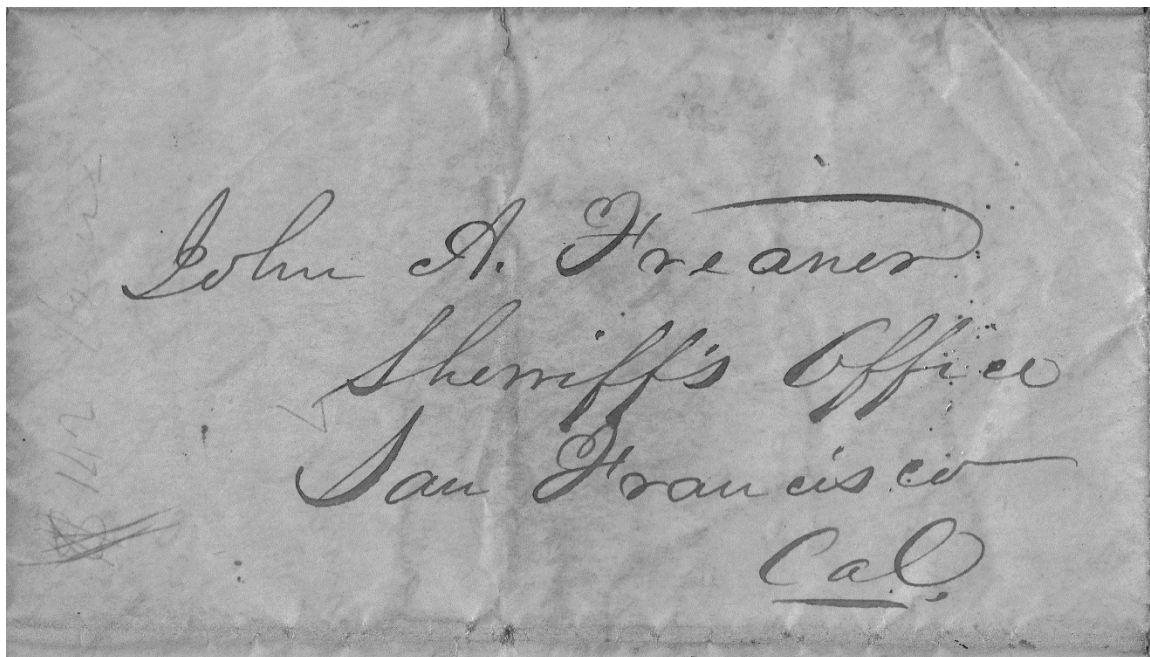 John A. Freaner
Sherriff's Office
San Francisco
Cal.